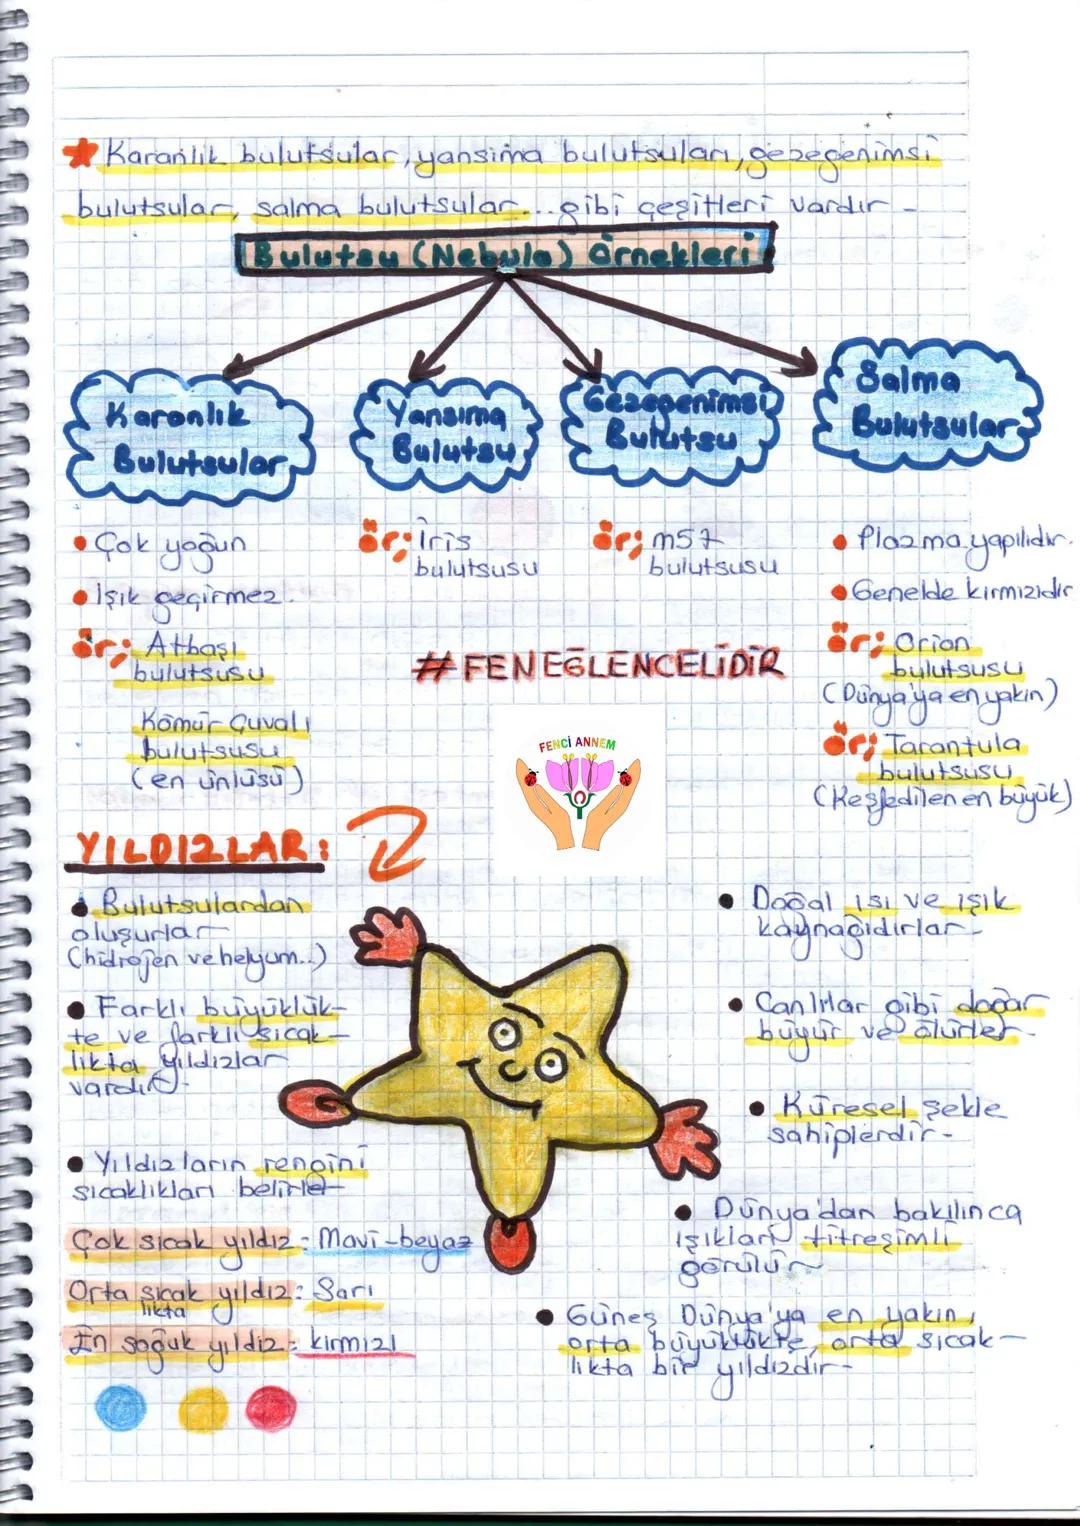 Karanlık bulutsular, yansıma bulutsuları, gezegenimsi
bulutsular, salma bulutsular... gibi çeşitleri vardır.
Bulutsu (Nebula) Örnekleri
Karanlık
Bulutsular
Yansıma
Bulutsu
Gezegenimsi
Bulutsu
Salma
Bulutsular
• Çok yoğun
• Işık geçirmez.
ör; Atbaşı
bulutsusu
Kömür Çuvalı
bulutsusu
(en ünlüsü)
ör; İris
bulutsusu
ör; m57
bulutsusu
• Plazma yapılıdır.
• Genelde kırmızıdır
ör; Orion
bulutsusu
(Dünya'ya en yakın)
ör; Tarantula
bulutsusu
(Keşfedilen en büyük)
#FEN EĞLENCELİDİR
FENCİ ANNEM
YILDIZLAR:
• Bulutsulardan
oluşurlar
(hidrojen ve helyum..)
• Farklı büyüklük-
te ve farklı sıcak-
lıkta yıldızlar
vardır.
• Yıldızların rengini
sıcaklıkları belirler
Çok sıcak yıldız: Mavi-beyaz
Orta sıcak yıldız: Sarı
lıkta
En soğuk yıldız: kırmızı
• Doğal ısı ve ışık
kaynağıdırlar.
• Canlılar gibi doğar
büyür ve ölürler.
• Küresel şekle
sahiplerdir.
• Dünya'dan bakılınca
ışıkları titreşimli
görülür
• Güneş Dünya'ya en yakın,
orta büyüklükte, orta sıcak-
lıkta bir yıldızdır.